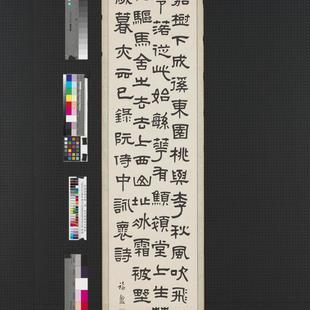 嘉樹下成徯東園桃與李秋風吹飛
零落從此始緐華有顦顇堂上生
驅馬舍之去去上西山趾冰霜被埜
歲暮亦云已錄阮侍中詠褱詩
福盦